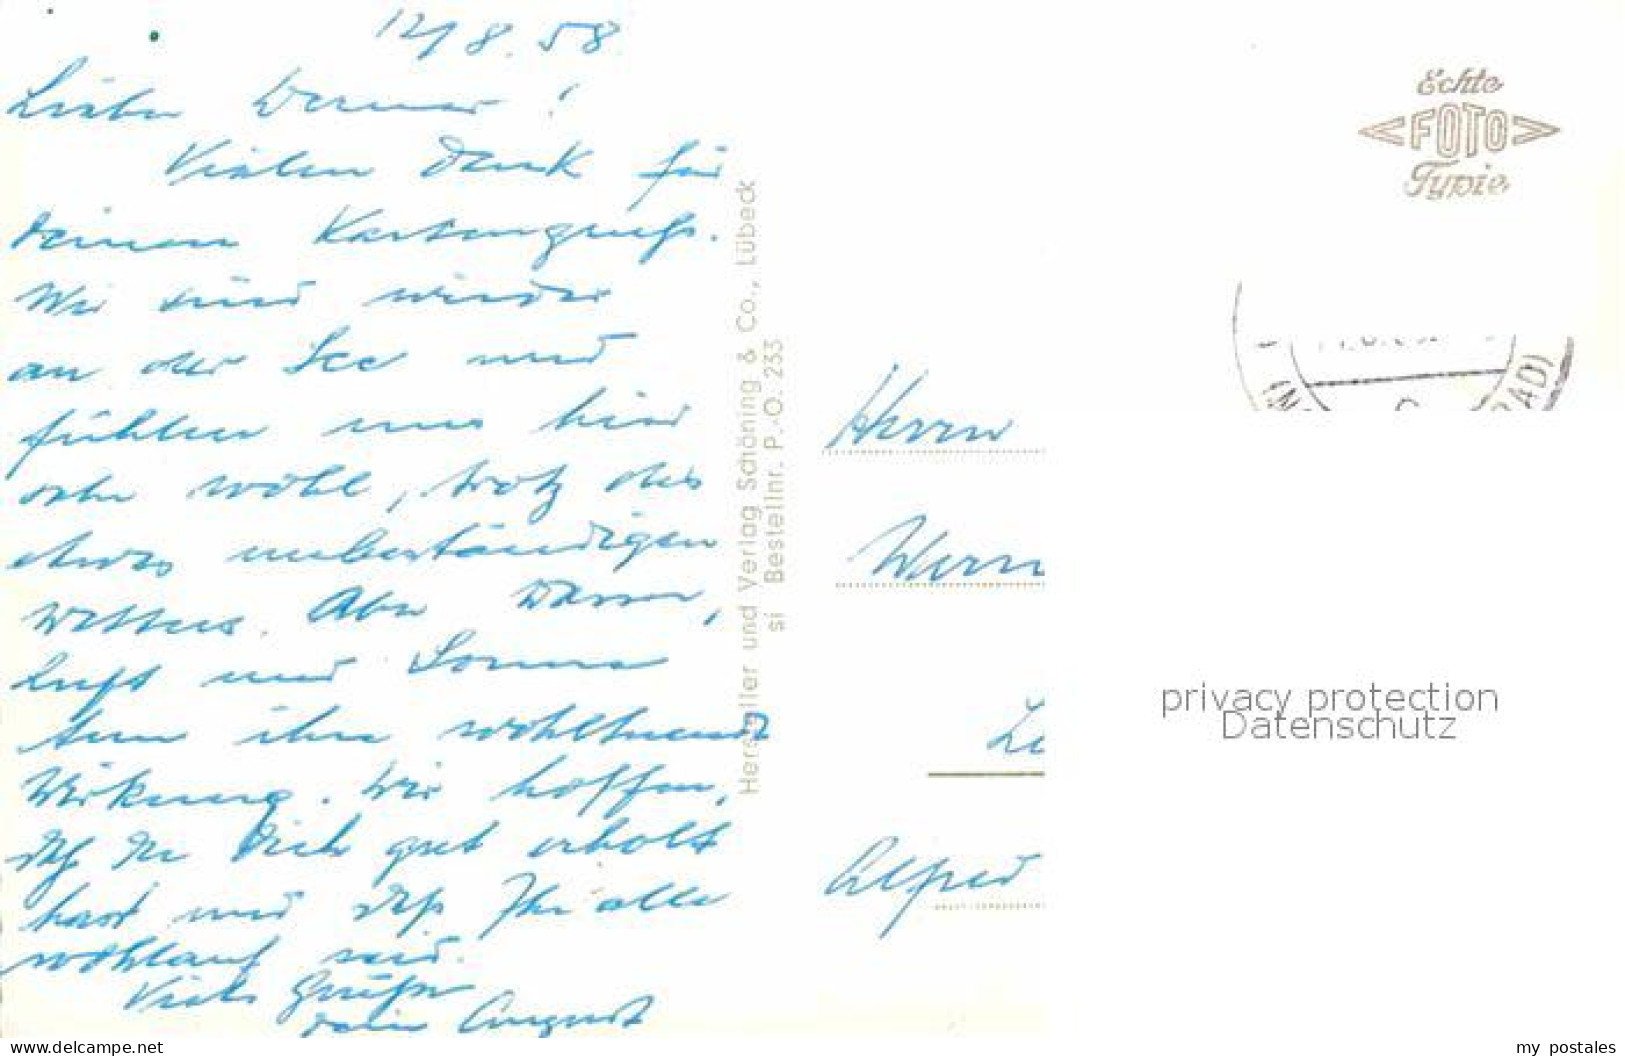 12/8.58
Lieber Werner!
Vielen Dank für
Deinen Kartengruß.
Wir sind wieder
an der See und
fühlen uns hier
sehr wohl, trotz des
etwas unbeständigen
Wetters. Aber Wasser,
Luft und Sonne
tun ihre wohltuende
Wirkung. Wir hoffen,
daß Du Dich gut erholt
hast und daß Ihr alle
wohlauf seid.
Viele Grüße
Dein August
Hersteller und Verlag Schöning & Co., Lübeck
si Bestellnr. P.O. 233
Echte
FOTO
Typie
BAD)
Herrn
Wern
Alfred
privacy protection
Datenschutz
www.delcampe.net
my_postales